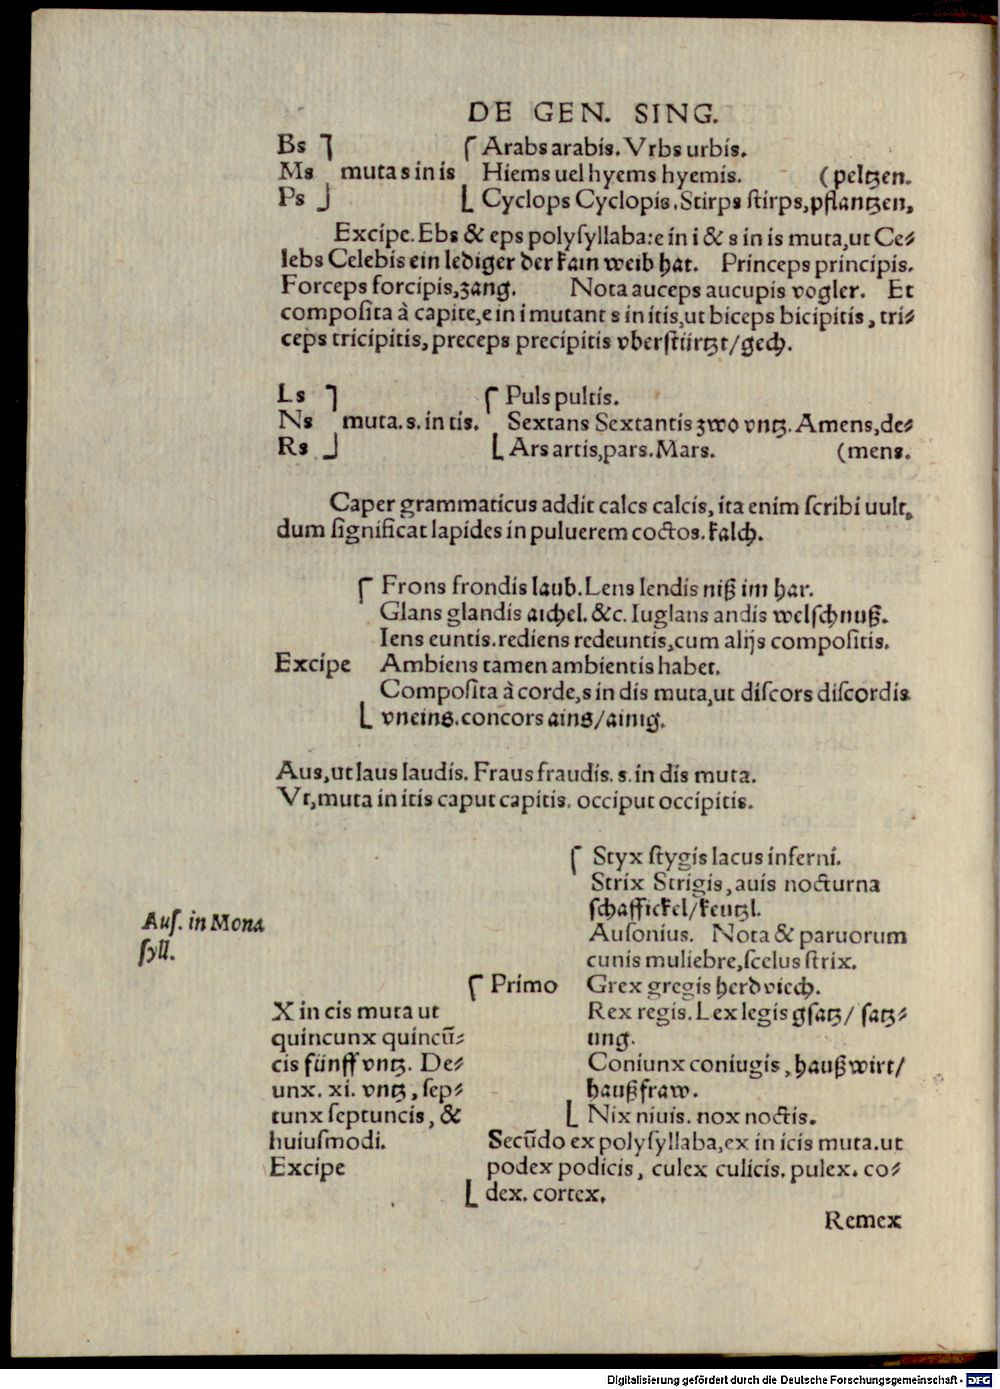 DE GEN. SING.
Bs ⎤ ⎡ Arabs arabis. Vrbs urbis.
Ms muta s in is Hiems uel hyems hyemis. (peltzen.
Ps ⎦ ⎣ Cyclops Cyclopis. Stirps ſtirps, pflantzen,
Excipe. Ebs & eps polyſyllaba: e in i & s in is muta, ut Ce⸗
lebs Celebis ein lediger der kain weib hat. Princeps principis.
Forceps forcipis, zang. Nota auceps aucupis vogler. Et
compoſita à capite, e in i mutant s in itis, ut biceps bicipitis, tri⸗
ceps tricipitis, preceps precipitis vberſtürtzt/gech.
Ls ⎤ ⎡ Puls pultis.
Ns muta. s. in tis. Sextans Sextantis zwo vntz. Amens, de⸗
Rs ⎦ ⎣ Ars artis, pars. Mars. (mens.
Caper grammaticus addit calcs calcis, ita enim ſcribi uult,
dum ſignificat lapides in puluerem coctos. kalch.
⎡ Frons frondis laub. Lens lendis niß im har.
Glans glandis aichel. &c. Iuglans andis welſchnuß.
Iens euntis. rediens redeuntis, cum alijs compoſitis.
Excipe Ambiens tamen ambientis habet.
Compoſita à corde, s in dis muta, ut diſcors diſcordis
⎣ vneins. concors ains/ainig.
Aus, ut laus laudis. Fraus fraudis. s. in dis muta.
Vt, muta in itis caput capitis. occiput occipitis.
⎡ Styx ſtygis lacus inferni.
Strix Strigis, auis nocturna
ſchaffickel/keutzl.
Auſ. in Mona
ſyll.
Auſonius. Nota & paruorum
cunis muliebre, ſcelus ſtrix.
⎡ Primo Grex gregis herd viech.
X in cis muta ut Rex regis. Lex legis gſatz/ ſatz⸗
quincunx quincũ⸗ ung.
cis fünff vntz. De⸗ Coniunx coniugis, haußwirt/
unx. xi. vntz, ſep⸗ haußfraw.
tunx ſeptuncis, & ⎣ Nix niuis. nox noctis.
huiuſmodi. Secũdo ex polyſyllaba, ex in icis muta. ut
Excipe podex podicis, culex culicis. pulex. co⸗
⎣ dex. cortex.
Remex
Digitalisierung gefördert durch die Deutsche Forschungsgemeinschaft - DFG